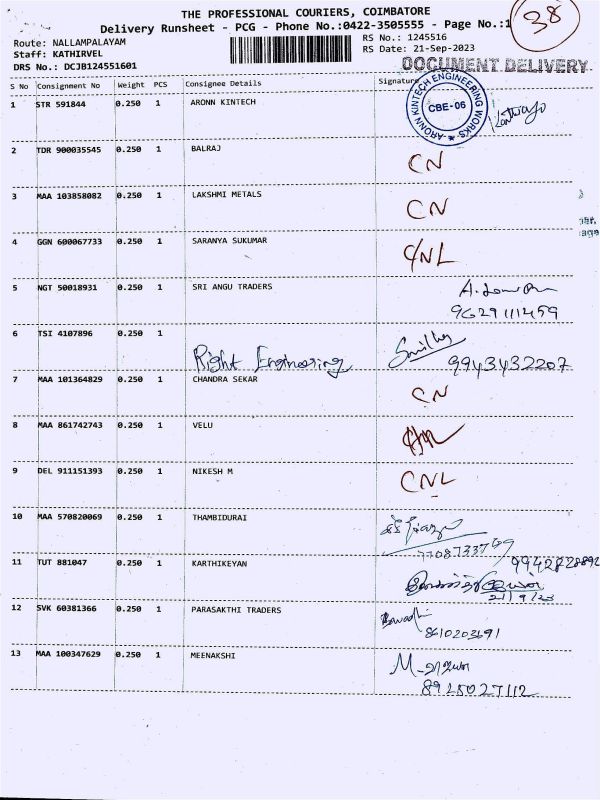 THE PROFESSIONAL COURIERS, COIMBATORE
Delivery Runsheet - PCG - Phone No.:0422-3505555 - Page No.:1
38
Route: NALLAMPALAYAM
RS No.: 1245516
Staff: KATHIRVEL
RS Date: 21-Sep-2023
DRS No.: DCJB124551601
DOCUMENT DELIVERY
S No Consignment No Weight PCS Consignee Details Signature
1 STR 591844 0.250 1 ARONN KINTECH
ARONN KINTECH ENGINEERING WORKS
CBE-06
2 TDR 900035545 0.250 1 BALRAJ CN
3 MAA 103858082 0.250 1 LAKSHMI METALS CN
4 GGN 600067733 0.250 1 SARANYA SUKUMAR CNL
5 NGT 50018931 0.250 1 SRI ANGU TRADERS
9629111459
6 TSI 4107896 0.250 1
Right Engineering 9943432207
7 MAA 101364829 0.250 1 CHANDRA SEKAR CN
8 MAA 861742743 0.250 1 VELU
9 DEL 911151393 0.250 1 NIKESH M CNL
10 MAA 570820069 0.250 1 THAMBIDURAI
11 TUT 881047 0.250 1 KARTHIKEYAN 9942828892
21/9/23
12 SVK 60381366 0.250 1 PARASAKTHI TRADERS
8610203691
13 MAA 100347629 0.250 1 MEENAKSHI
8925027112